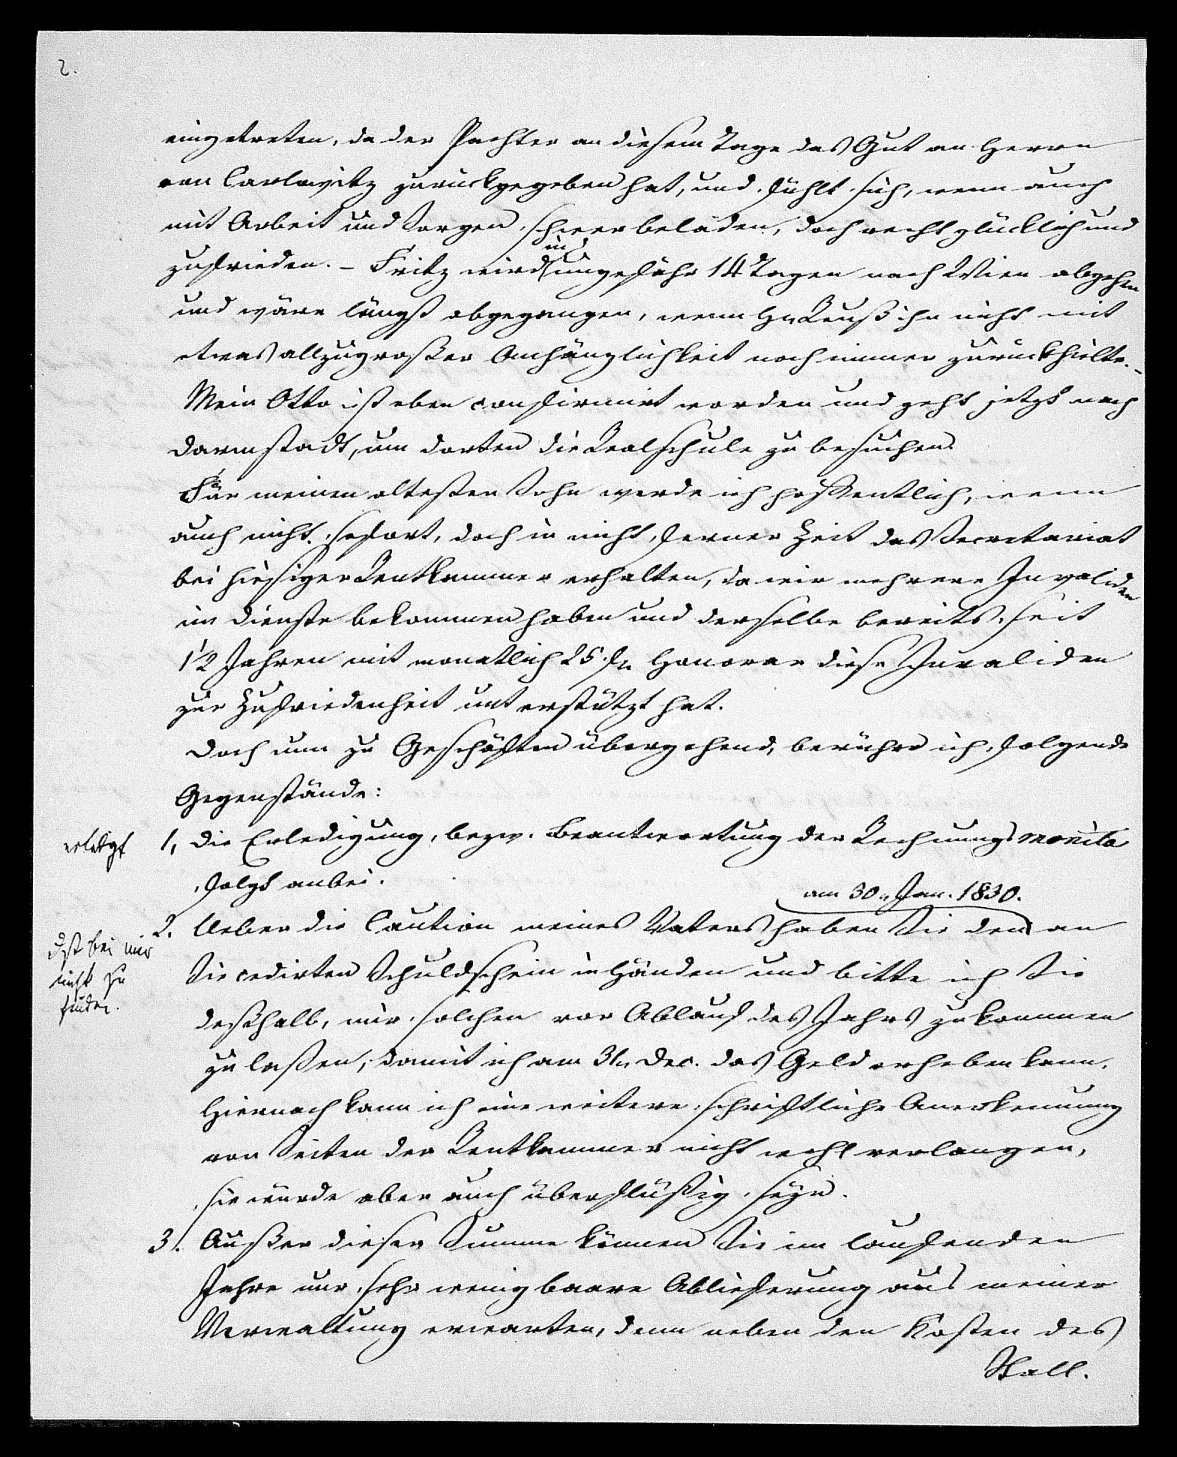 2.
eingetreten, da der Pachter an diesem Tage das Gut an Herrn
von Carlowitz zurückgegeben hat, und fühlt sich, wenn auch
mit Arbeit und Sorgen schwer beladen, doch recht glücklich und
zufrieden. – Fritz wird in ungefähr 14 Tagen nach Wien abgehen
und wäre längst abgegangen, wenn Hr Reuß ihn nicht mit
etwas allzugroßer Anhänglichkeit noch immer zurückhielte. –
Mein Otto ist eben confirmirt worden und geht jetzt nach
Darmstadt, um dorten die Realschule zu besuchen.
Für meinen altesten Sohn werde ich hoffentlich, wenn
auch nicht sofort, doch in nicht ferner Zeit das Secretariat
bei hiesiger Rentkammer erhalten, da wir mehrere Invaliden
im Dienste bekommen haben und derselbe bereits seit
1/2 Jahren mit monatlich 25 fl Honorar diese Invaliden
zur Zufriedenheit unterstützt hat.
Doch nun zu Geschäften übergehend, berühre ich folgende
Gegenstände:
erledigt
1, Die Erledigung, bezw. Beantwortung der Rechnungsmonita
folgt anbei.
am 30. Jan. 1830.
2. Ueber die Caution meines Vaters haben Sie den an
Ist bei mir
nicht zu
finden.
Sie cedirten Schuldschein in Händen und bitte ich Sie
deßhalb, mir solchen vor Ablauf des Jahrs zukommen
zu laßen, damit ich am 31. Dec. das Geld erheben kann.
Hiernach kann ich eine weitere schriftliche Anerkennung
von Seiten der Rentkammer nicht wohl verlangen,
sie würde aber auch überflüßig seyn.
3. Außer dieser Summe können Sie im laufenden
Jahre nur sehr wenig baare Ablieferung aus meiner
Verwaltung erwarten, denn neben den Kosten des
Stall.